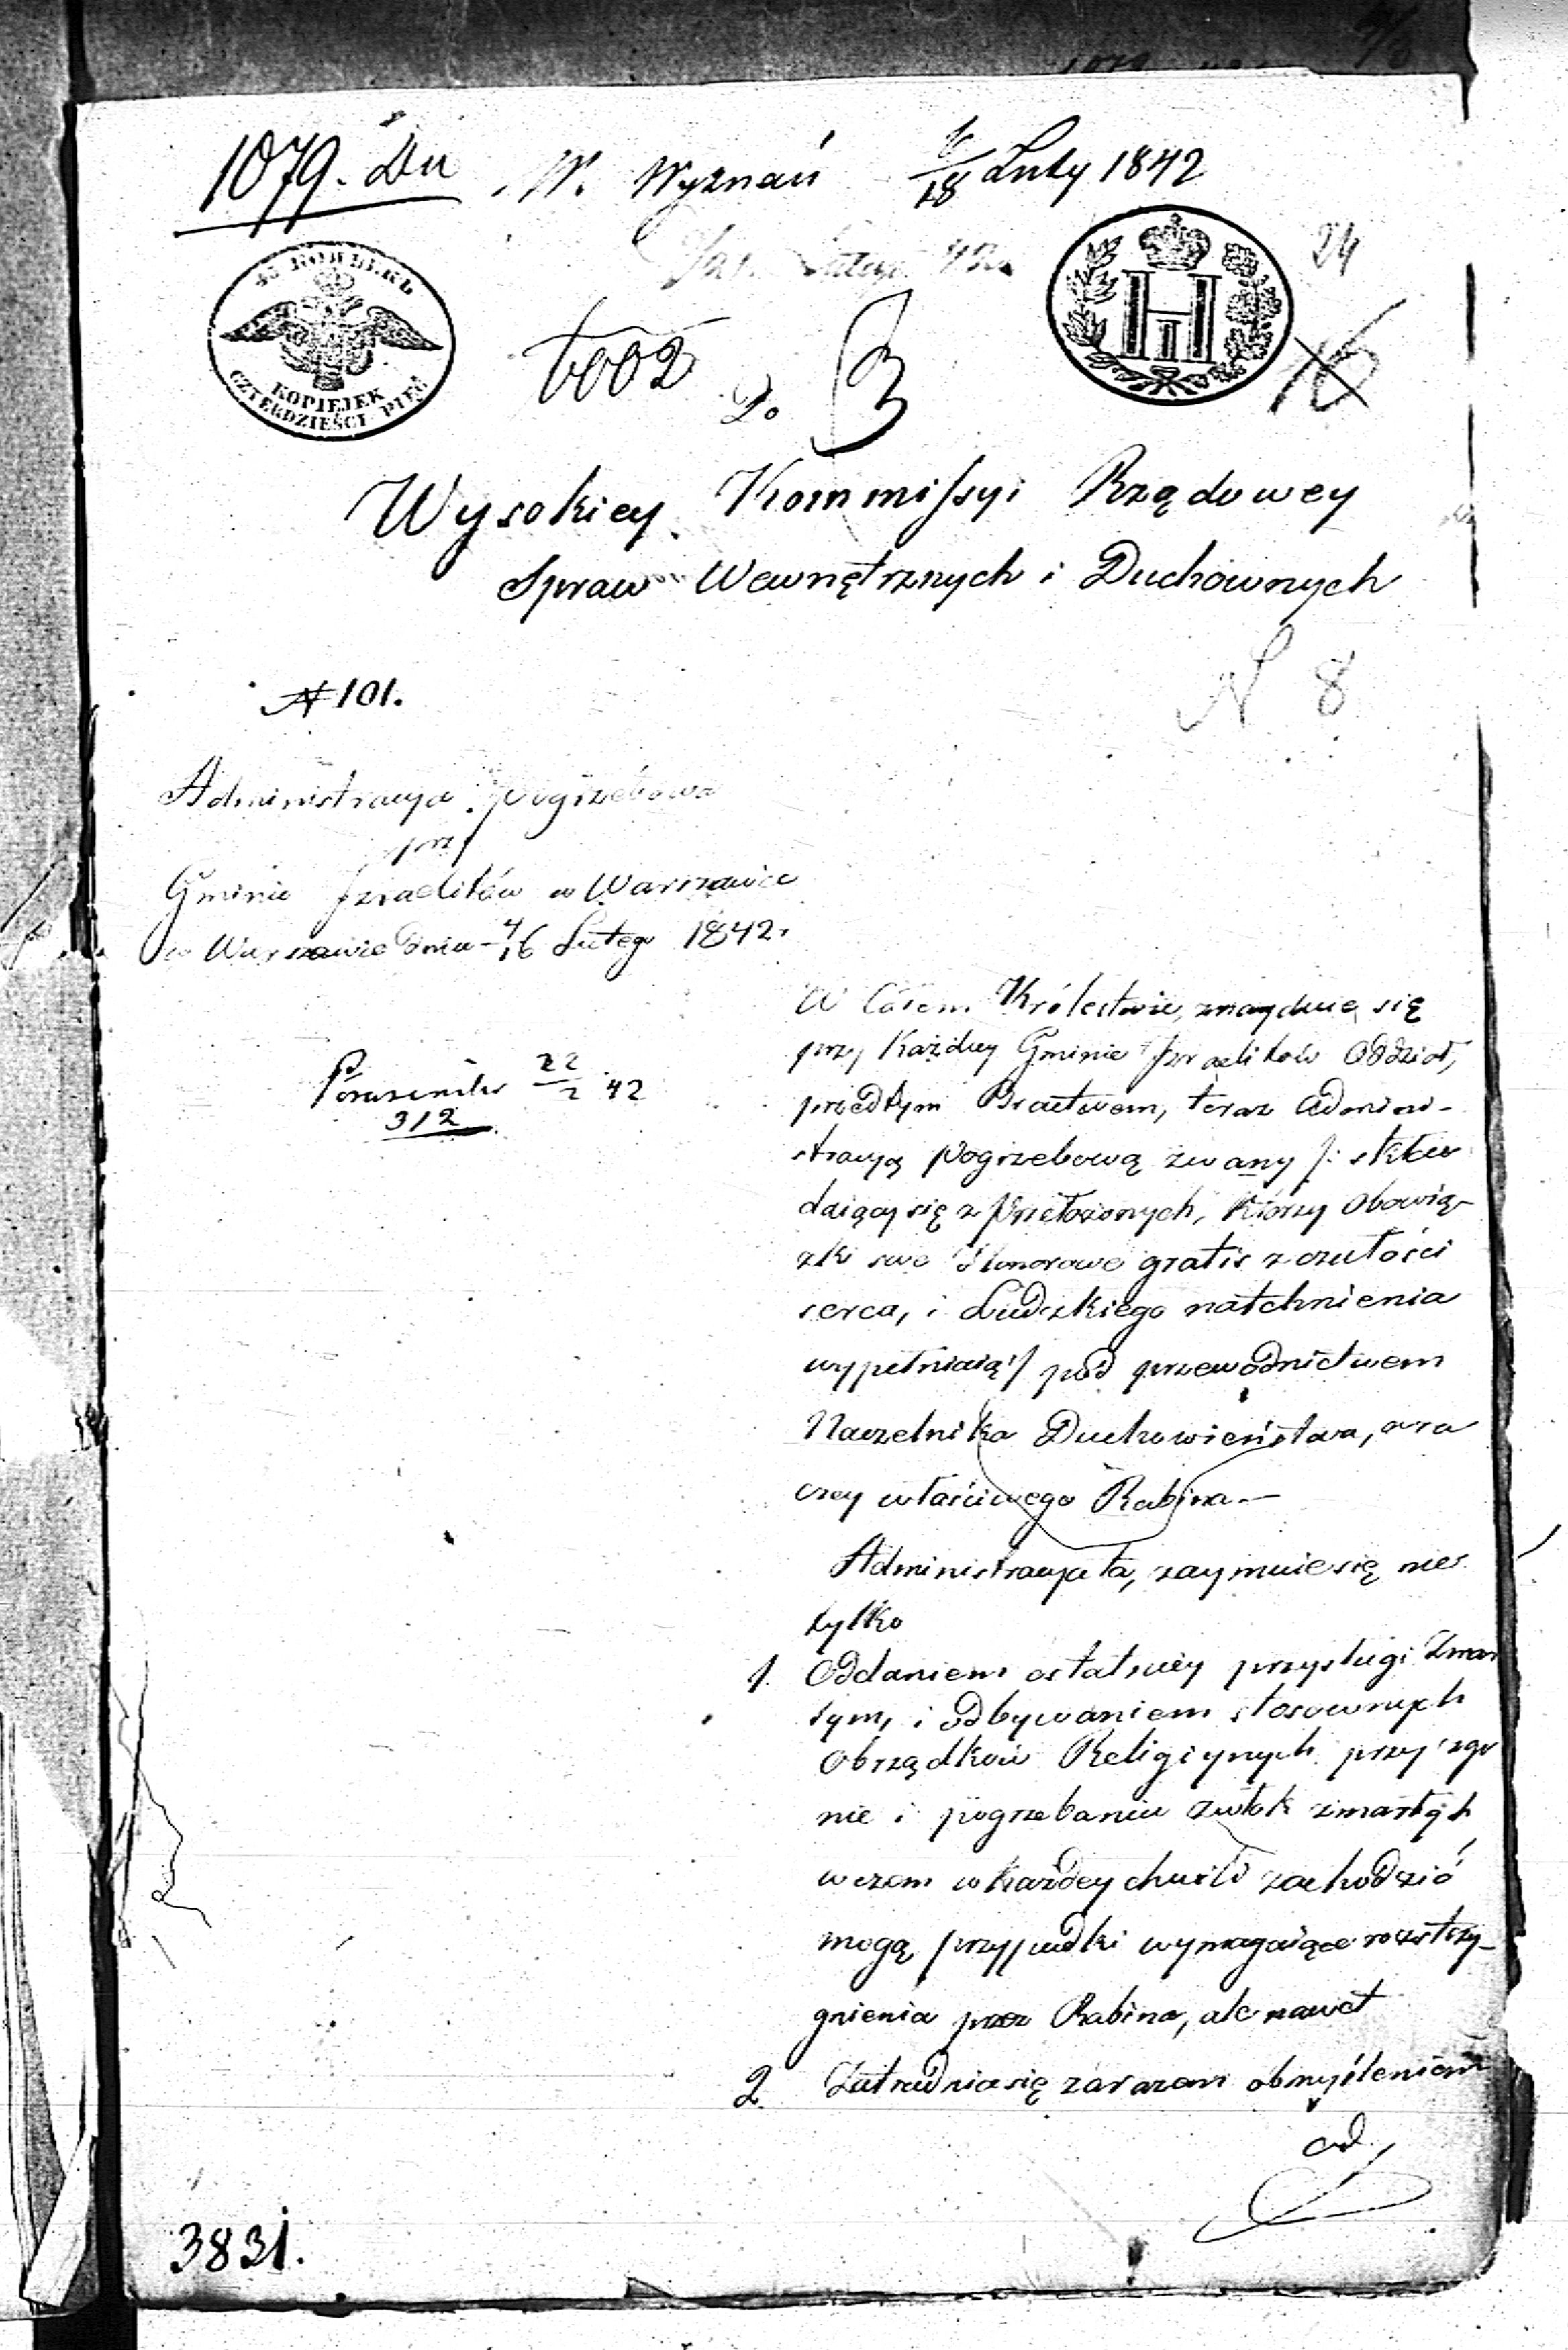 1079. Dn W. Wyznań 6/18 Luty 1842
24
45 KOPIEEKЪ
KOPIEJEK
CZTERDZIEŚCI PIĘĆ
H I
6002 Do
16
Wysokiey Kommissyi Rządowey
Spraw Wewnętrznych i Duchownych
N 8
N 101.
Administracya Pogrzebowa
przy
Gminie Izraelitów w Warszawie
w Warszawie dnia 4/16 Lutego 1842.
22/2 42
312
W całem Królestwie, znayduie się
przy każdey Gminie Izraelitów Oddział,
przedtym Bractwem, teraz Admini-
stracyą Pogrzebową zwany /: skła
daiący się z Przełożonych, którzy obowią-
zki swe Honorowe gratis z czułości
serca, i Ludzkiego natchnienia
wypełniaią:/ pod przewodnictwem
Naczelnika Duchowieństwa, a ra
czey właściwego Rabina.—
Administracya ta, zaymuie się nie
tylko
1. Oddaniem ostatniey przysługi Zmar
łym, i odbywaniem stosownych
Obrządków Religiynych przy zgo
nie i pogrzebaniu zwłok zmarłych
w czem w każdey chwili zachodzić
mogą przypadki wymagaiące rozstrzy-
gnienia przez Rabina, ale nawet
2. Zatrudnia się zarazem obmyśleniem
3831.